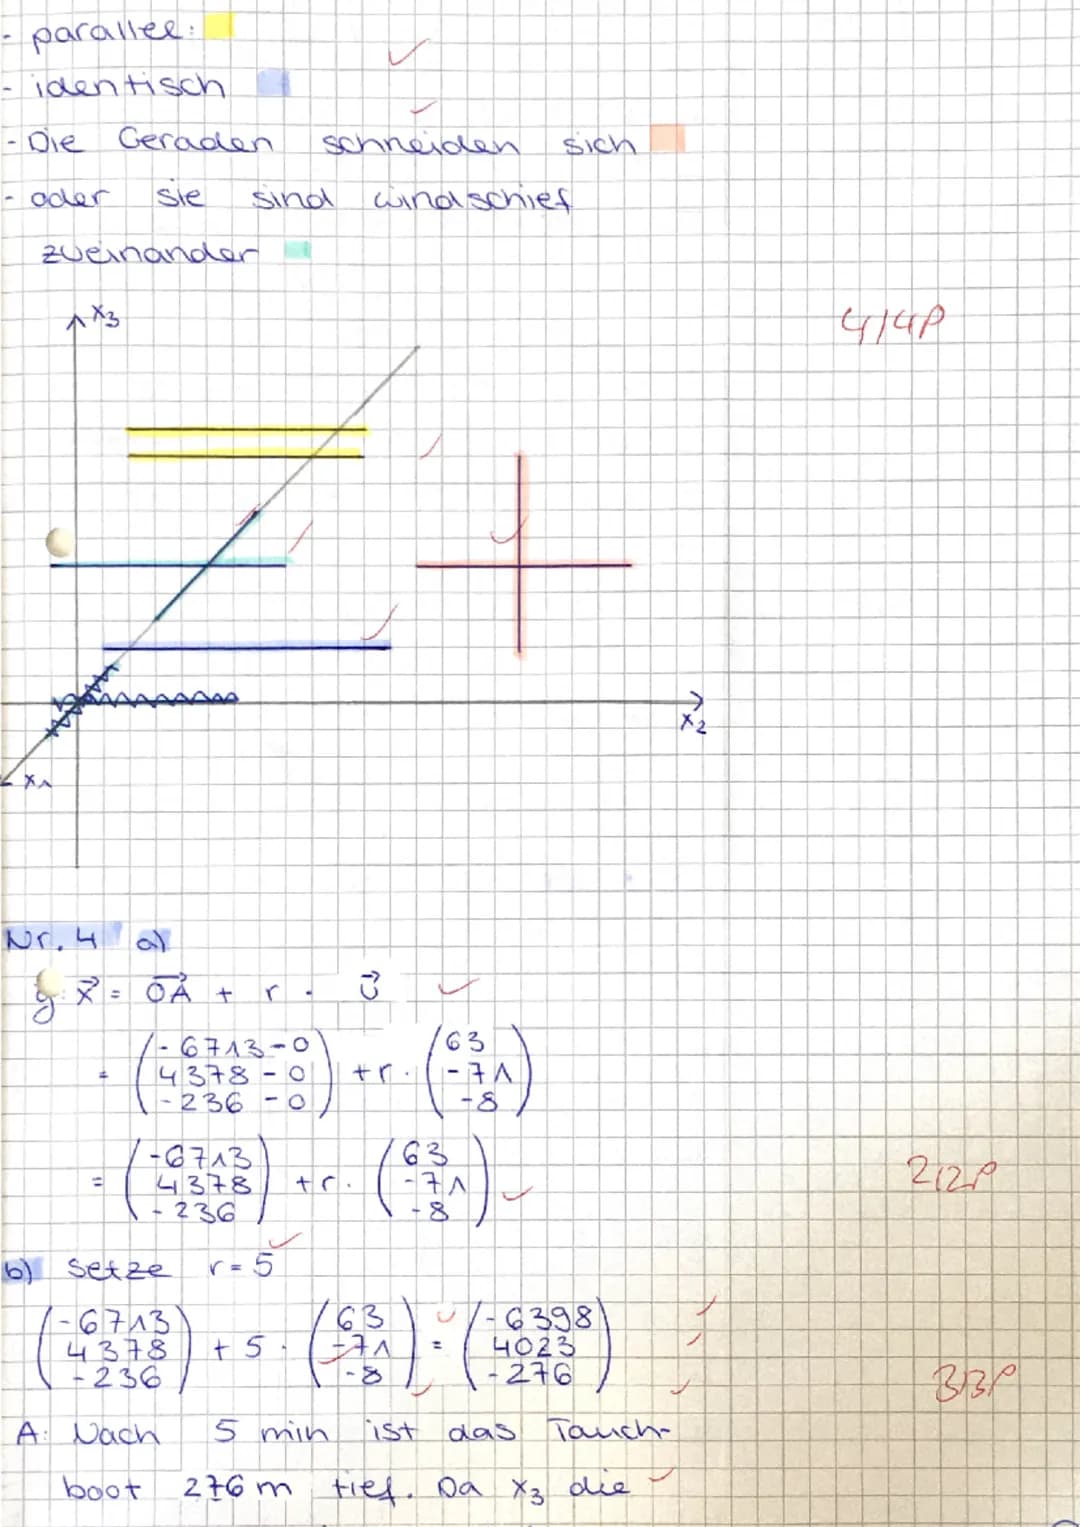 - parallel:
- identisch
- Die Geraden schneiden sich
- oder sie sind windschief
zueinander
x₃
4/4P
x₂
x₁
Nr. 4 a)
g: x⃗ = OA⃗ + r · u⃗
= (-6713-0 4378-0 -236-0) + r · (63 -71 -8)
= (-6713 4378 -236) + r · (63 -71 -8)
2/2P
b) Setze r = 5
(-6713 4378 -236) + 5 · (63 -71 -8) = (-6398 4023 -276)
3/3P
A: Nach 5 min ist das Tauch-
boot 276 m tief. Da x₃ die